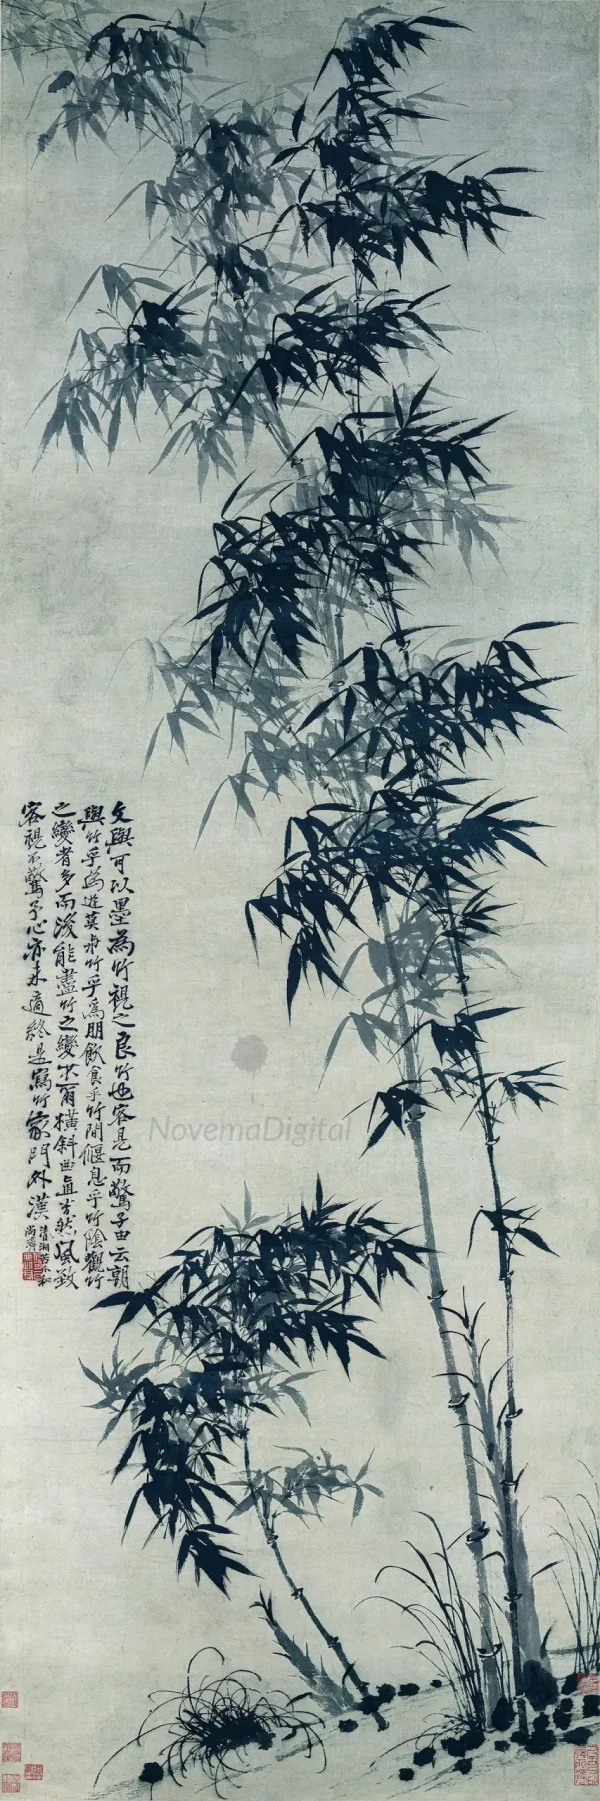 文與可以墨為竹視之良竹也客見而驚子由云朝
與竹乎為遊莫與竹乎為朋飲食乎竹間偃息乎竹陰觀竹
之變者多而後能盡竹之變橫斜曲直風
客視不驚予心亦未適終是寫竹家門外漢
清湘苦瓜和
尚濟
NovemaDigital